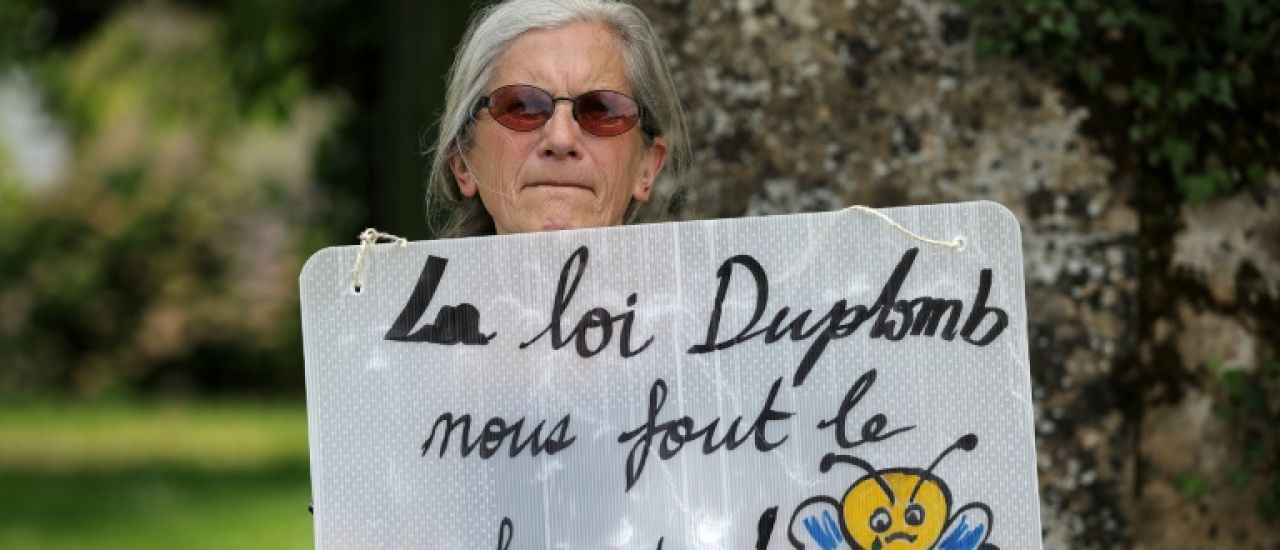 La loi Duplomb
nous fout le
!